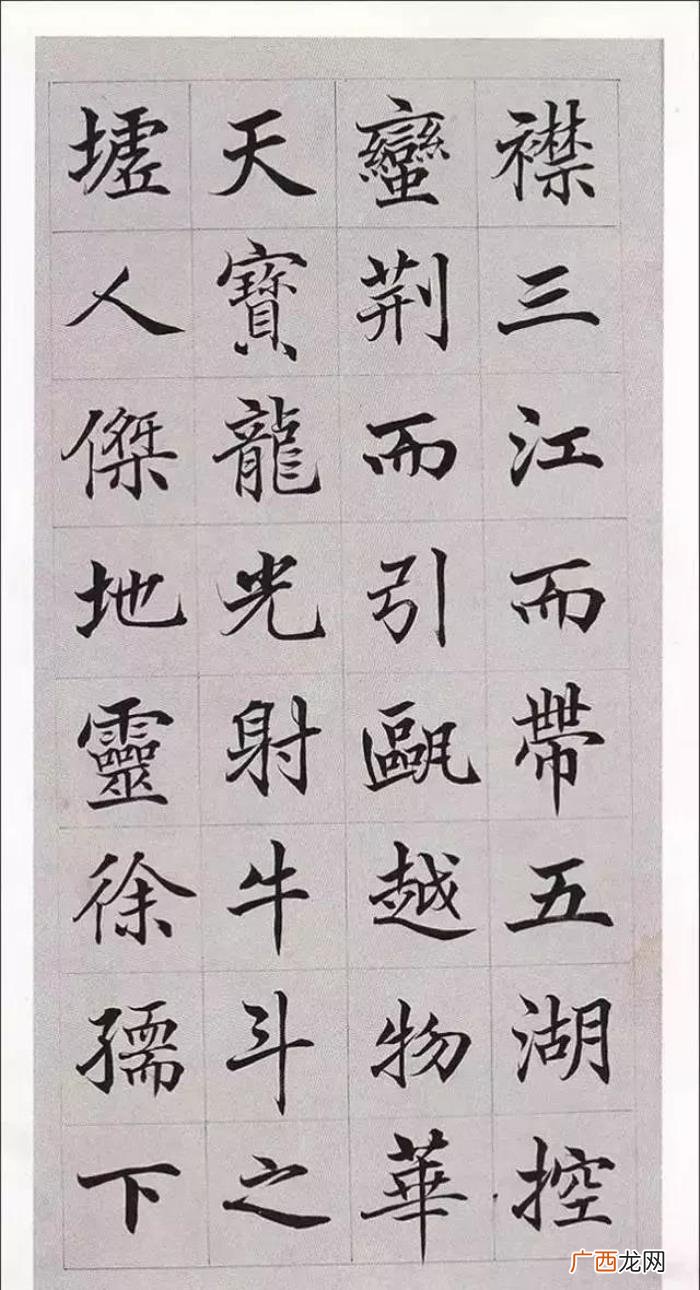 襟三江而帶五湖控
蠻荆而引甌越物華
天寶龍光射牛斗之
墟人傑地靈徐孺下
广西龙网